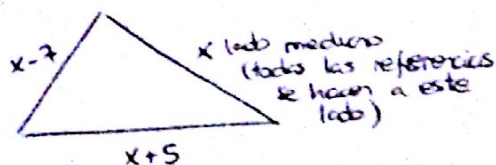 x-7
x lado mediano
(todas las referencias
se hacen a este
lado)
x+5